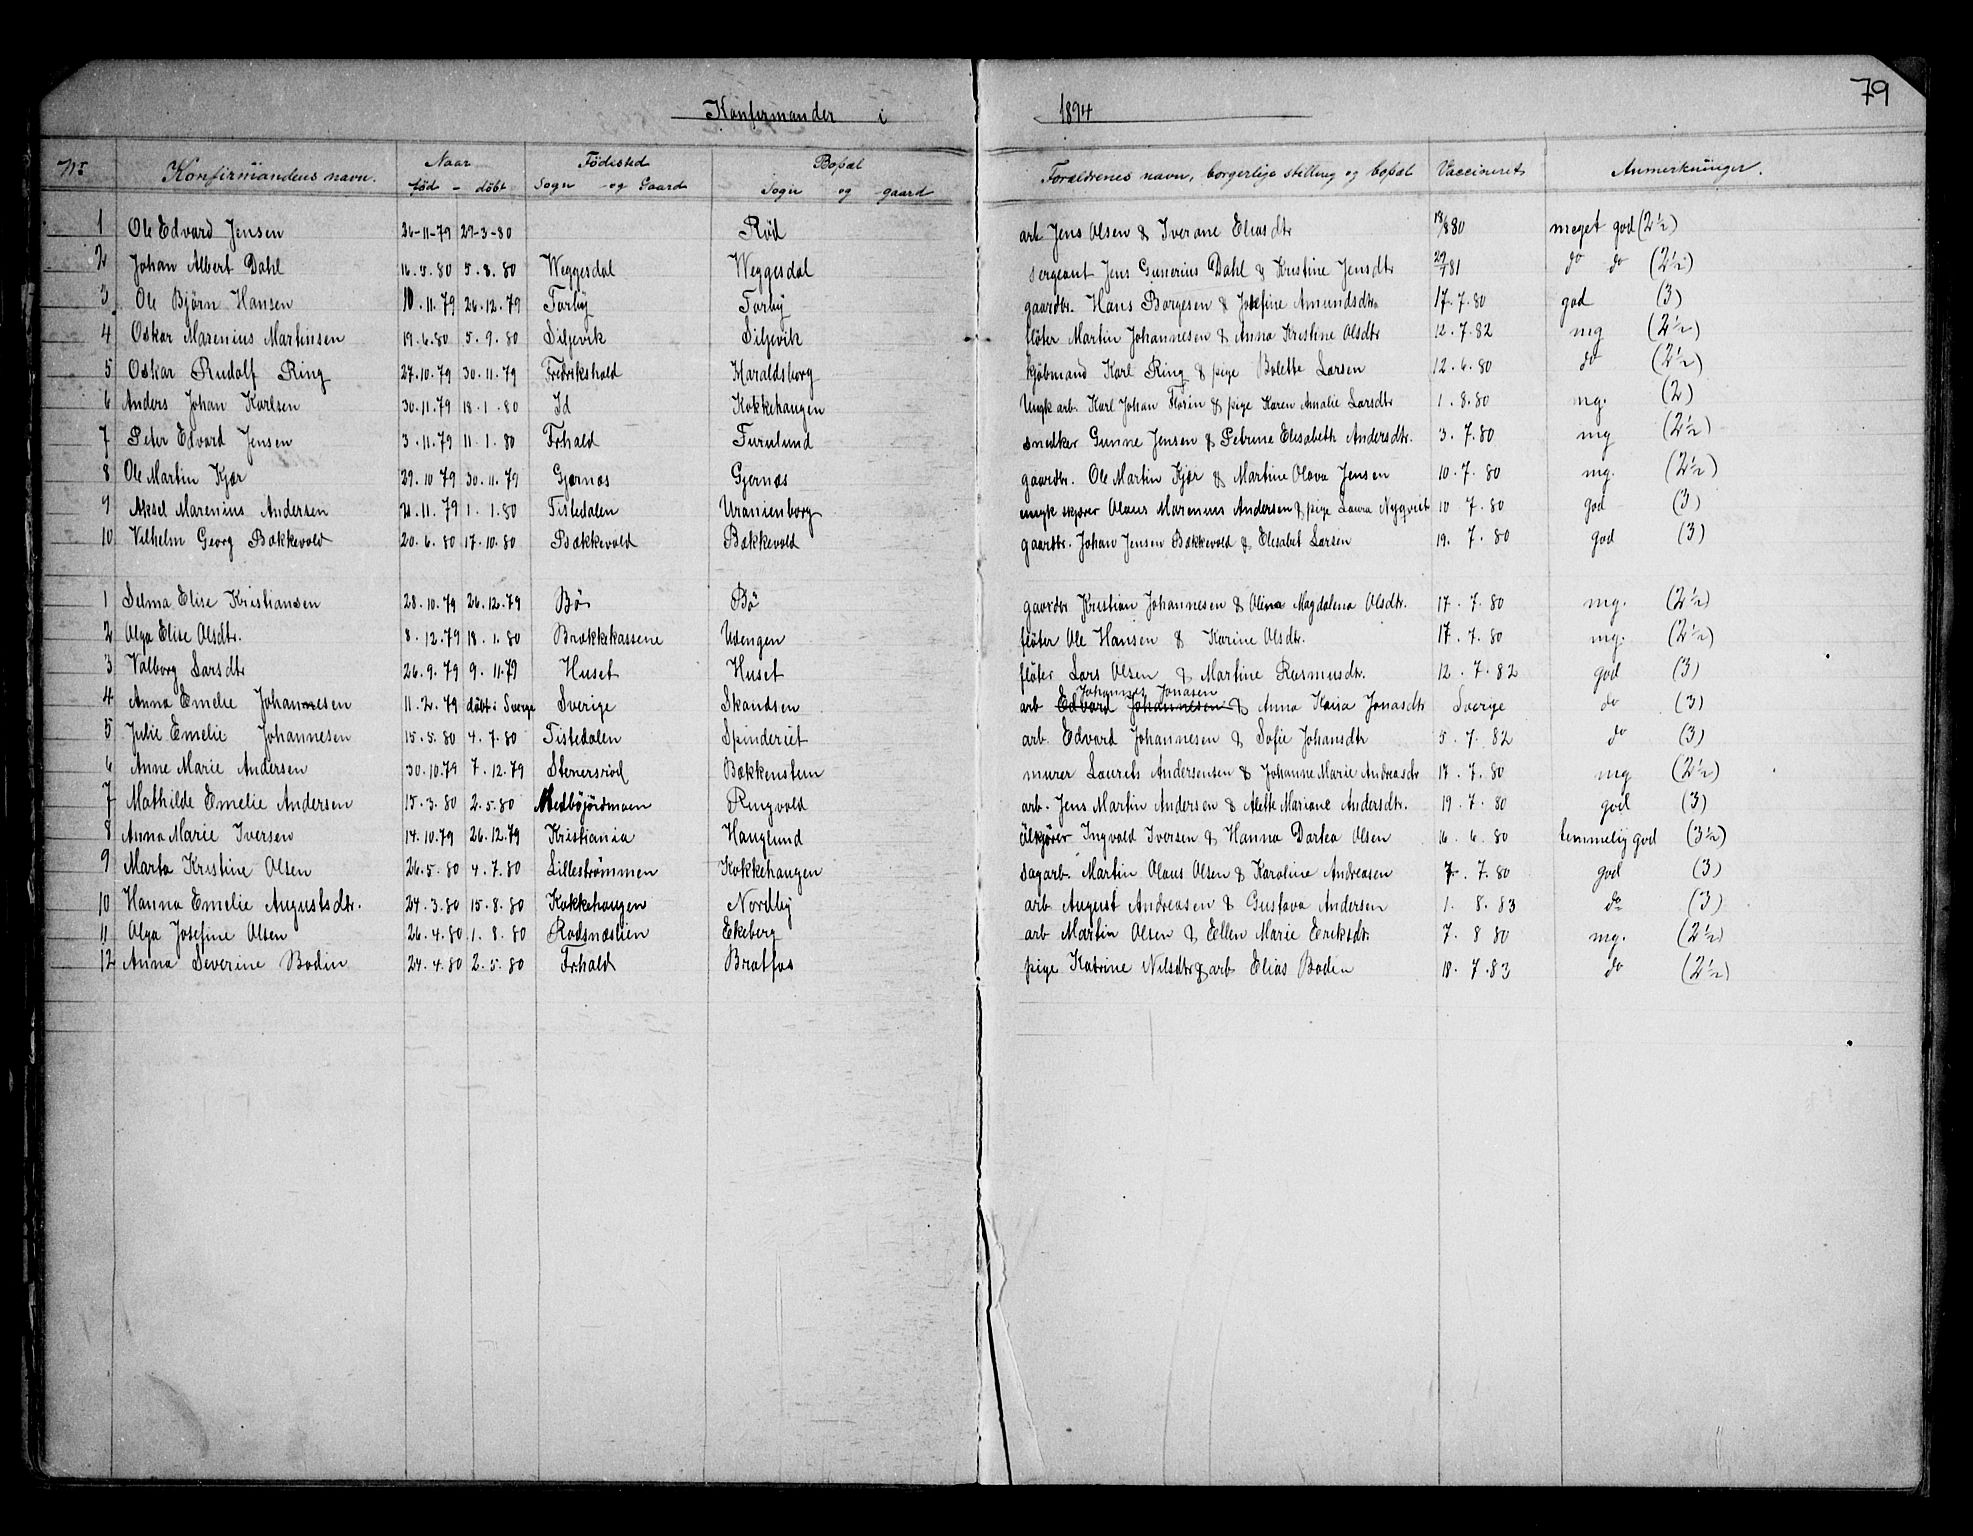 79
Konfirmander i 1894
No Konfirmandens navn. Naar Födested Bopæl Forældrenes navn, borgerlige stilling og bopæl Vaccineret Anmerkninger.
född - döbt Sogn og Gaard Sogn og gaard
1 Ole Edvard Jensen 26-11-79 29-3-80 Röd arb. Jens Olsen & Iverane Eliasdtr 18/6 80 meget god (2½)
2 Johan Albert Dahl 16.5.80 5.8.80 Weggesdal Weggesdal sergeant Jens Gunerius Dahl & Kristine Jensdtr 29/7 81 do do (2½)
3 Ole Björn Hansen 10.11.79 26.12.79 Torby Torby gaardbr. Hans Borgesen & Josefine Amundsdtr 17.7.80 god (3)
4 Oskar Marenius Martinsen 19.6.80 5.9.80 Siljevik Siljevik flöter Martin Johannesen & Anna Kristine Olsdtr 12.7.82 mg (2½)
5 Oskar Rudolf Ring 27.10.79 30.11.79 Fredrikshald Haraldsborg kjöbmand Karl Ring & pige Bolette Larsen 12.6.80 do (2½)
6 Anders Johan Karlsen 30.11.79 18.1.80 Id Kokkehaugen Ungk arb. Karl Johan Florin & pige Karen Amalie Larsdtr 1.8.80 mg. (2)
7 Peter Edvard Jensen 3.11.79 11.1.80 Frhald Furulund snedker Gunne Jensen & Petrine Elisabeth Andersdtr. 3.7.80 mg (2½)
8 Ole Martin Kjær 29.10.79 30.11.79 Gjernæs Gjernæs gaardbr. Ole Martin Kjær & Martine Olava Jensen 10.7.80 mg. (2½)
9 Aksel Marenius Andersen 21.11.79 1.1.80 Tistedalen Uranienborg ungk skjærer Olaus Marenius Andersen & pige Laura Nyqvist 10 7.80 god (3)
10 Vilhelm Georg Bækkevold 20.6.80 17.10.80 Bækkevold Bækkevold gaardbr. Johan Jensen Bækkevold & Elisabet Larsen 19. 7.80 god (3)
1 Selma Elise Kristiansen 28.10.79 26.12.79 Bö Bö gaardbr Kristian Johannesen & Olina Magdalena Olsdtr. 17.7.80 mg. (2½)
2 Olga Elise Olsdtr. 8.12.79 18.1.80 Brækkekassene Udengen flöter Ole Hansen & Karine Olsdtr. 17.7.80 mg. (2½)
3 Valborg Larsdtr 26.9.79 9.11.79 Huset Huset flöter Lars Olsen & Martine Rasmusdtr. 12.7.82 god (3)
4 Anna Emelie Johannesen 11.2.79 döbt i Sverge Sverige Skandsen arb Edvard Johannesen Johannes Jonasen & Anna Kaisa Jonasdtr Sverige do (3)
5 Julie Emelie Johannesen 15.5.80 4.7.80 Tistedalen Spinderiet arb. Edvard Johannesen & Sofie Johansdtr 5.7.82 do (3)
6 Anne Marie Andersen 30.10.79 7.12.79 Stenersröd Bækkenstem murer Laurits Andersensen & Johanne Marie Andreasdtr 17.7.80 mg (2½)
7 Mathilde Emelie Andersen 15.3.80 2.5.80 Medböjördmoen Ringvold arb. Jens Martin Andersen & Mette Mariane Andersdtr. 19.7.80 god (3)
8 Anna Marie Iversen 14.10.79 26.12.79 Kristiania Hauglund ölkjörer Ingvald Iversen & Hanna Dartea Olsen 16.6.80 temmelig god (3½)
9 Marta Kristine Olsen 26.5.80 4.7.80 Lilleströmmen Kokkehaugen sagarb. Martin Olaus Olsen & Karoline Andreasen 7.7.80 god (3)
10 Hanna Emelie Augustsdtr. 24.3.80 15.8.80 Kokkehaugen Nordby arb August Andreasen & Gustava Andersen 1.8.83 do (3)
11 Olga Josefine Olsen 26.4.80 1.8.80 Rodsnæslien Ekeberg arb Martin Olsen & Ellen Marie Eriksdtr. 7.8 80 mg. (2½)
12 Anna Severine Bodin 24.4.80 2.5.80 Frhald Bratfos pige Katrine Nilsdtr & arb Elias Bodin 18.7.83 do (2½)